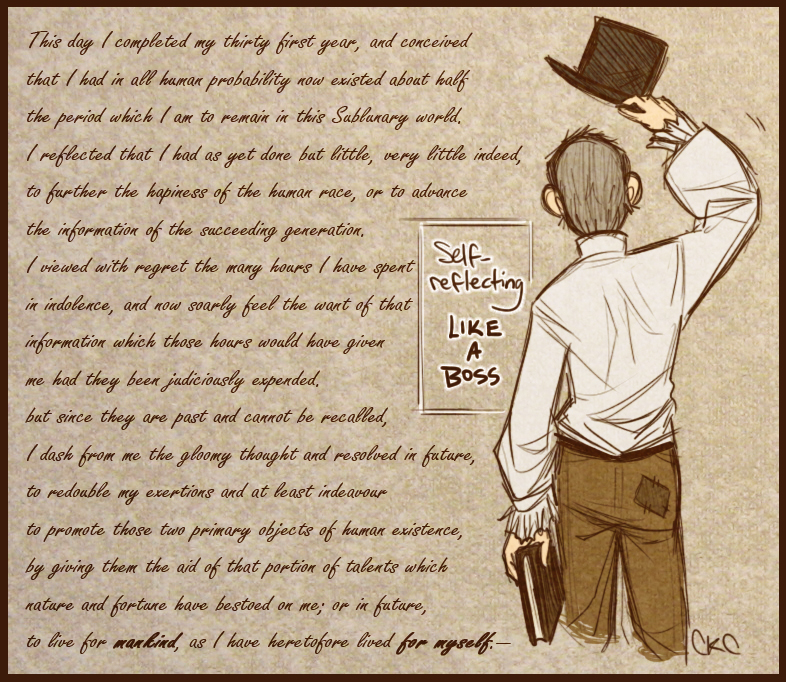 This day I completed my thirty first year, and conceived
that I had in all human probability now existed about half
the period which I am to remain in this Sublunary world.
I reflected that I had as yet done but little, very little indeed,
to further the hapiness of the human race, or to advance
the information of the succeeding generation.
I viewed with regret the many hours I have spent
in indolence, and now soarly feel the want of that
information which those hours would have given
me had they been judiciously expended.
but since they are past and cannot be recalled,
I dash from me the gloomy thought and resolved in future,
to redouble my exertions and at least indeavour
to promote those two primary objects of human existence,
by giving them the aid of that portion of talents which
nature and fortune have bestoed on me; or in future,
to live for mankind, as I have heretofore lived for myself.—
Self-
reflecting
LIKE
A
BOSS
CKC